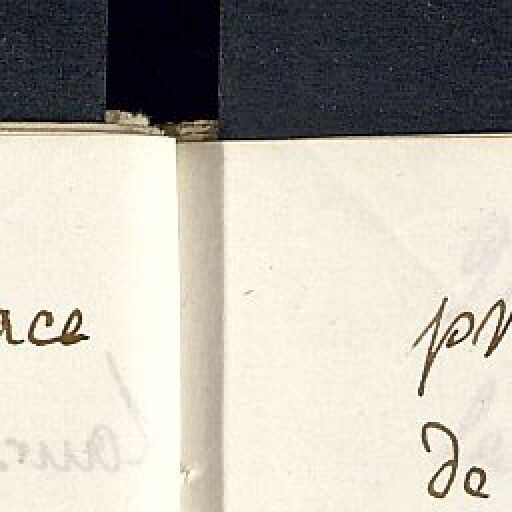 ace
pr
de